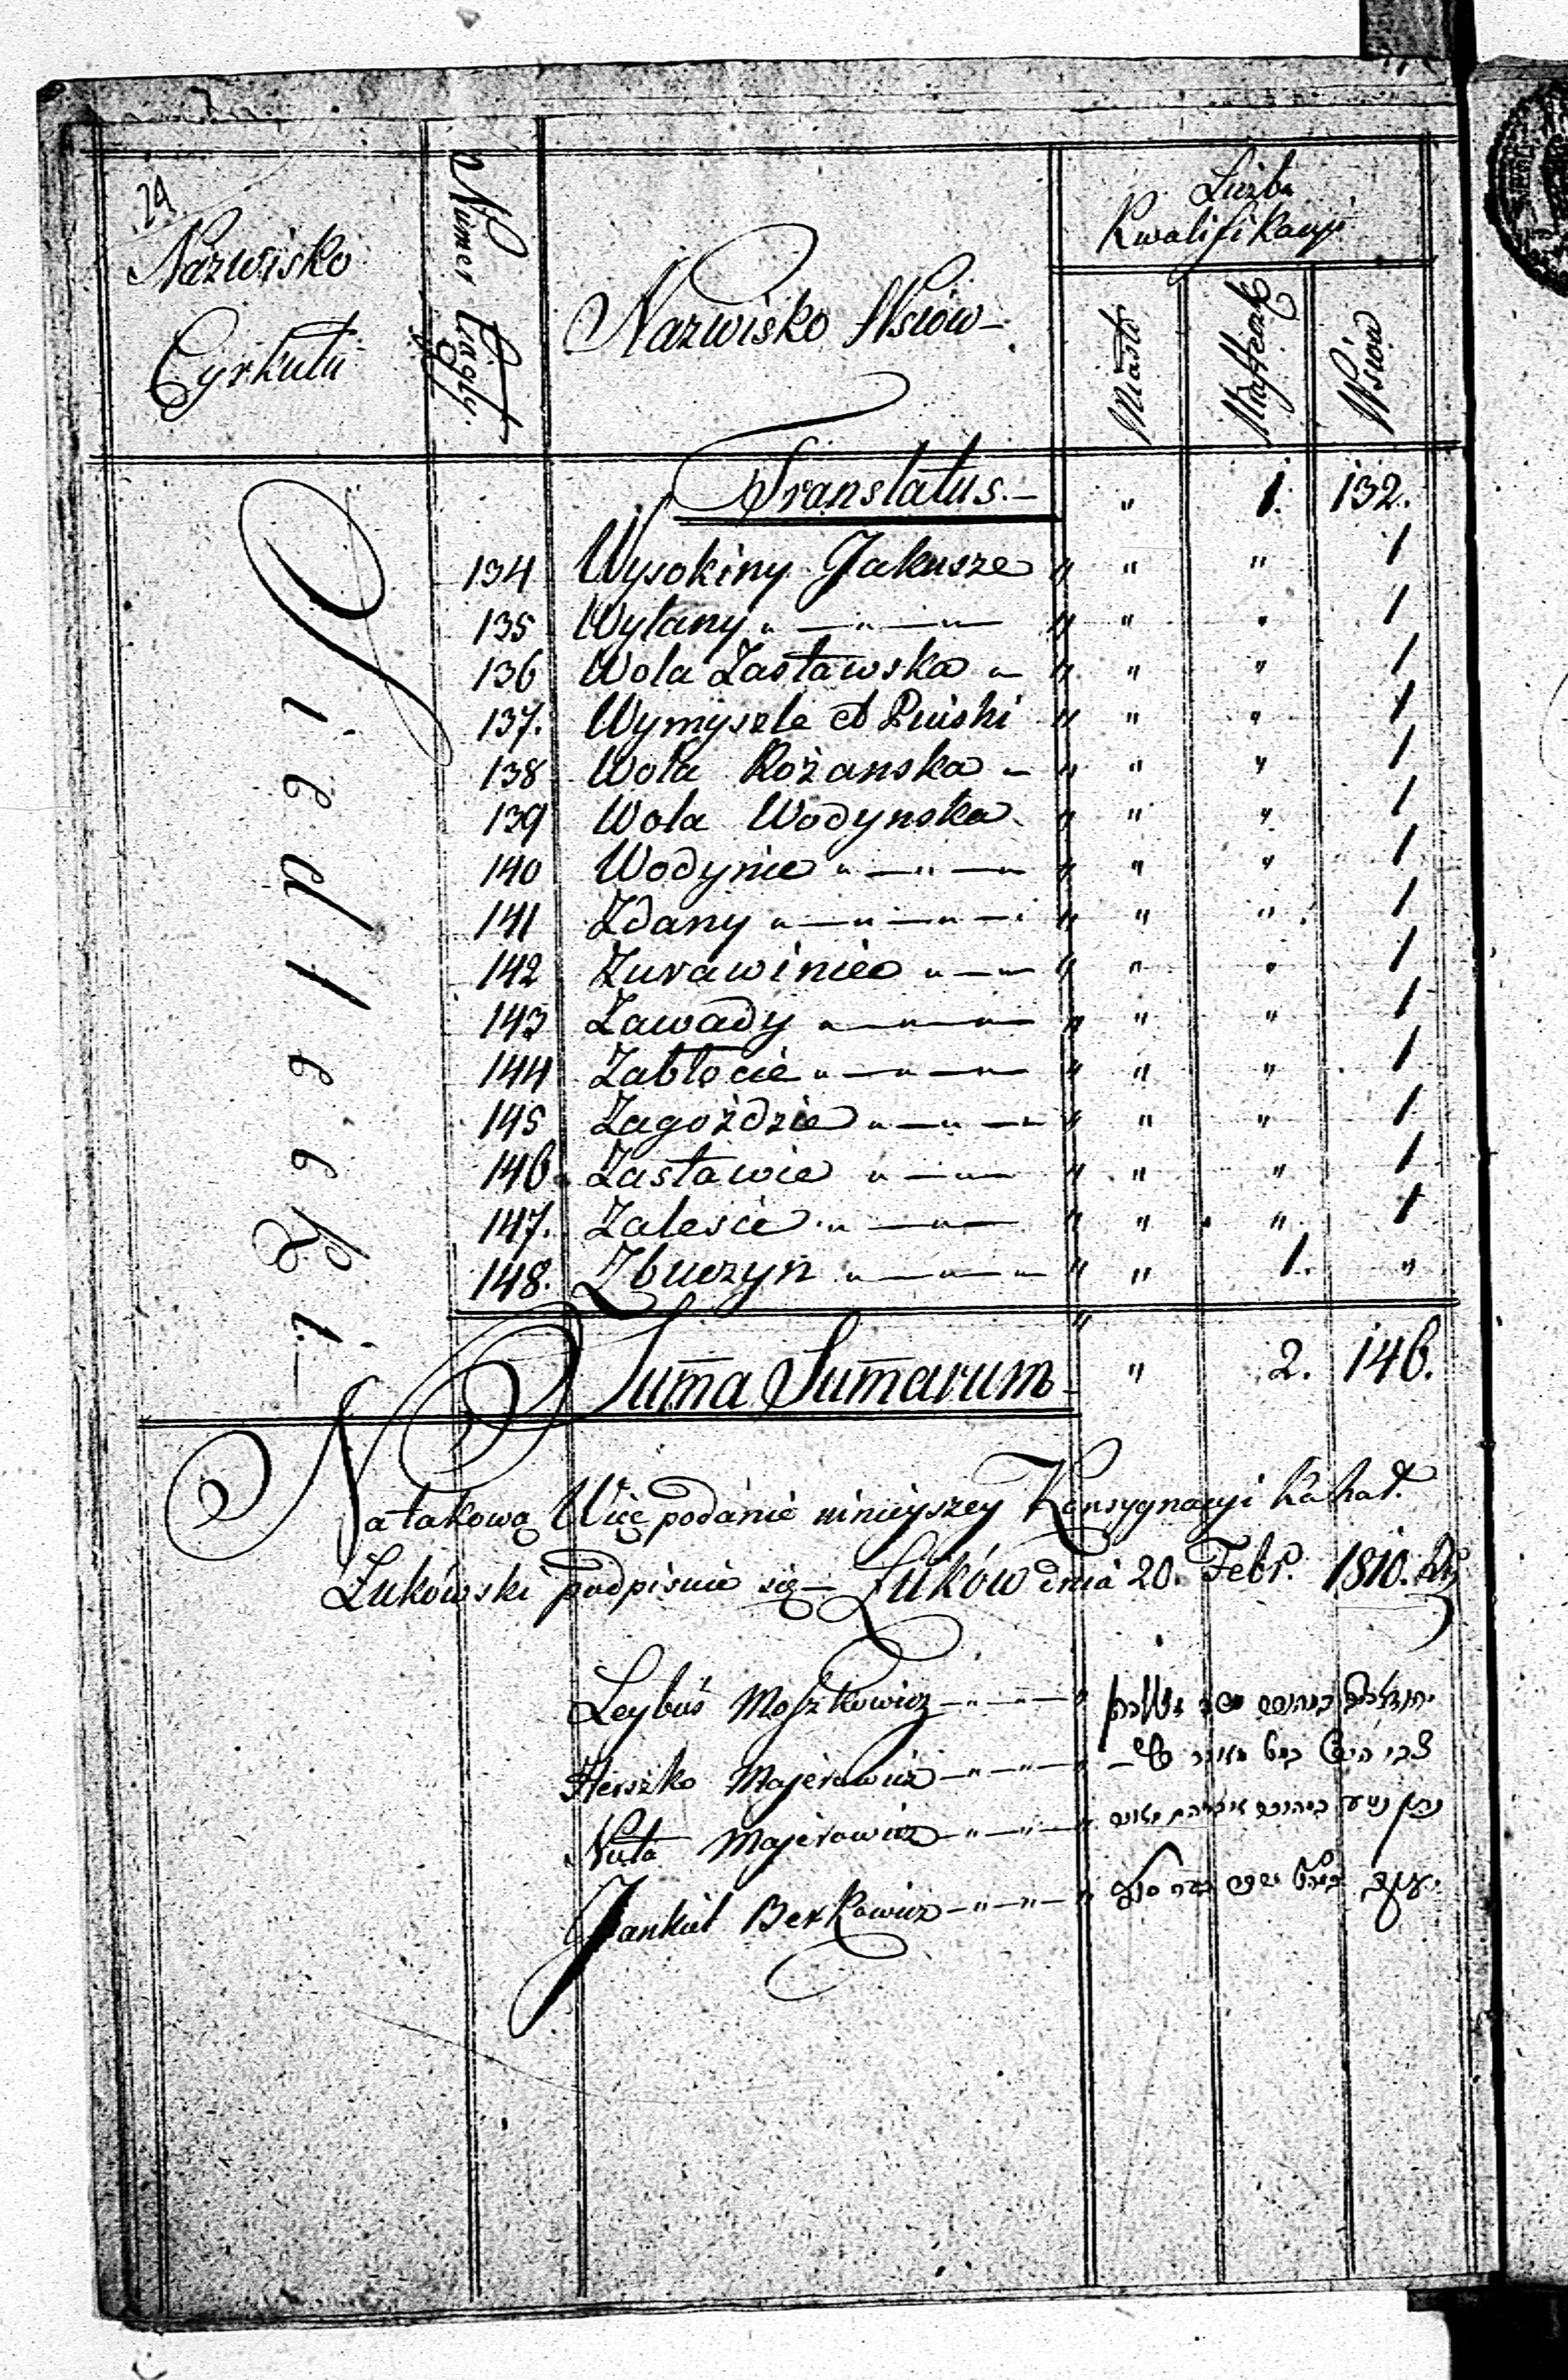 29
Nazwisko
Cyrkułu
Numer Ciągły.
Nazwisko Wsiów
Liczba
Kwalifikacyi
Miasto
Miasteczk
Wsiów
Siedlecki
Translatus " 1. 132.
134 Wysokiny Jakusze " " " 1
135 Wylany " — " — " — " " " 1
136 Wola Zastawska " — " " " 1
137. Wymysele et " " " 1
138 Wola Różanska — " " " 1
139 Wola Wodynska " " " 1
140 Wodynie " — " — " " " 1
141 Zdany " — " — " — " " " 1
142 Zurawiniec " — " — " " " 1
143 Zawady " — " — " — " " " 1
144 Zabłocie " — " — " — " " " 1
145 Zagoździe " — " — " " " 1
146 Zastawie " — " — " " " 1
147. Zalesie " — " — " " " 1
148. Zbuczyn " — " — " — " " 1. "
Sum̄a Sum̄arum " 2. 146.
Na takową Więc podanie ninieyszey Konsygnacyi Kahał.
Łukowski podpisuie się — Łuków dnia 20. Febr. 1810. R
Leybuś Moszkowicz — " — " — "
Herszko Majerowicz — " — " — "
Nuta Majerowicz — " — " — "
Jankiel Berkowicz — " — " — "